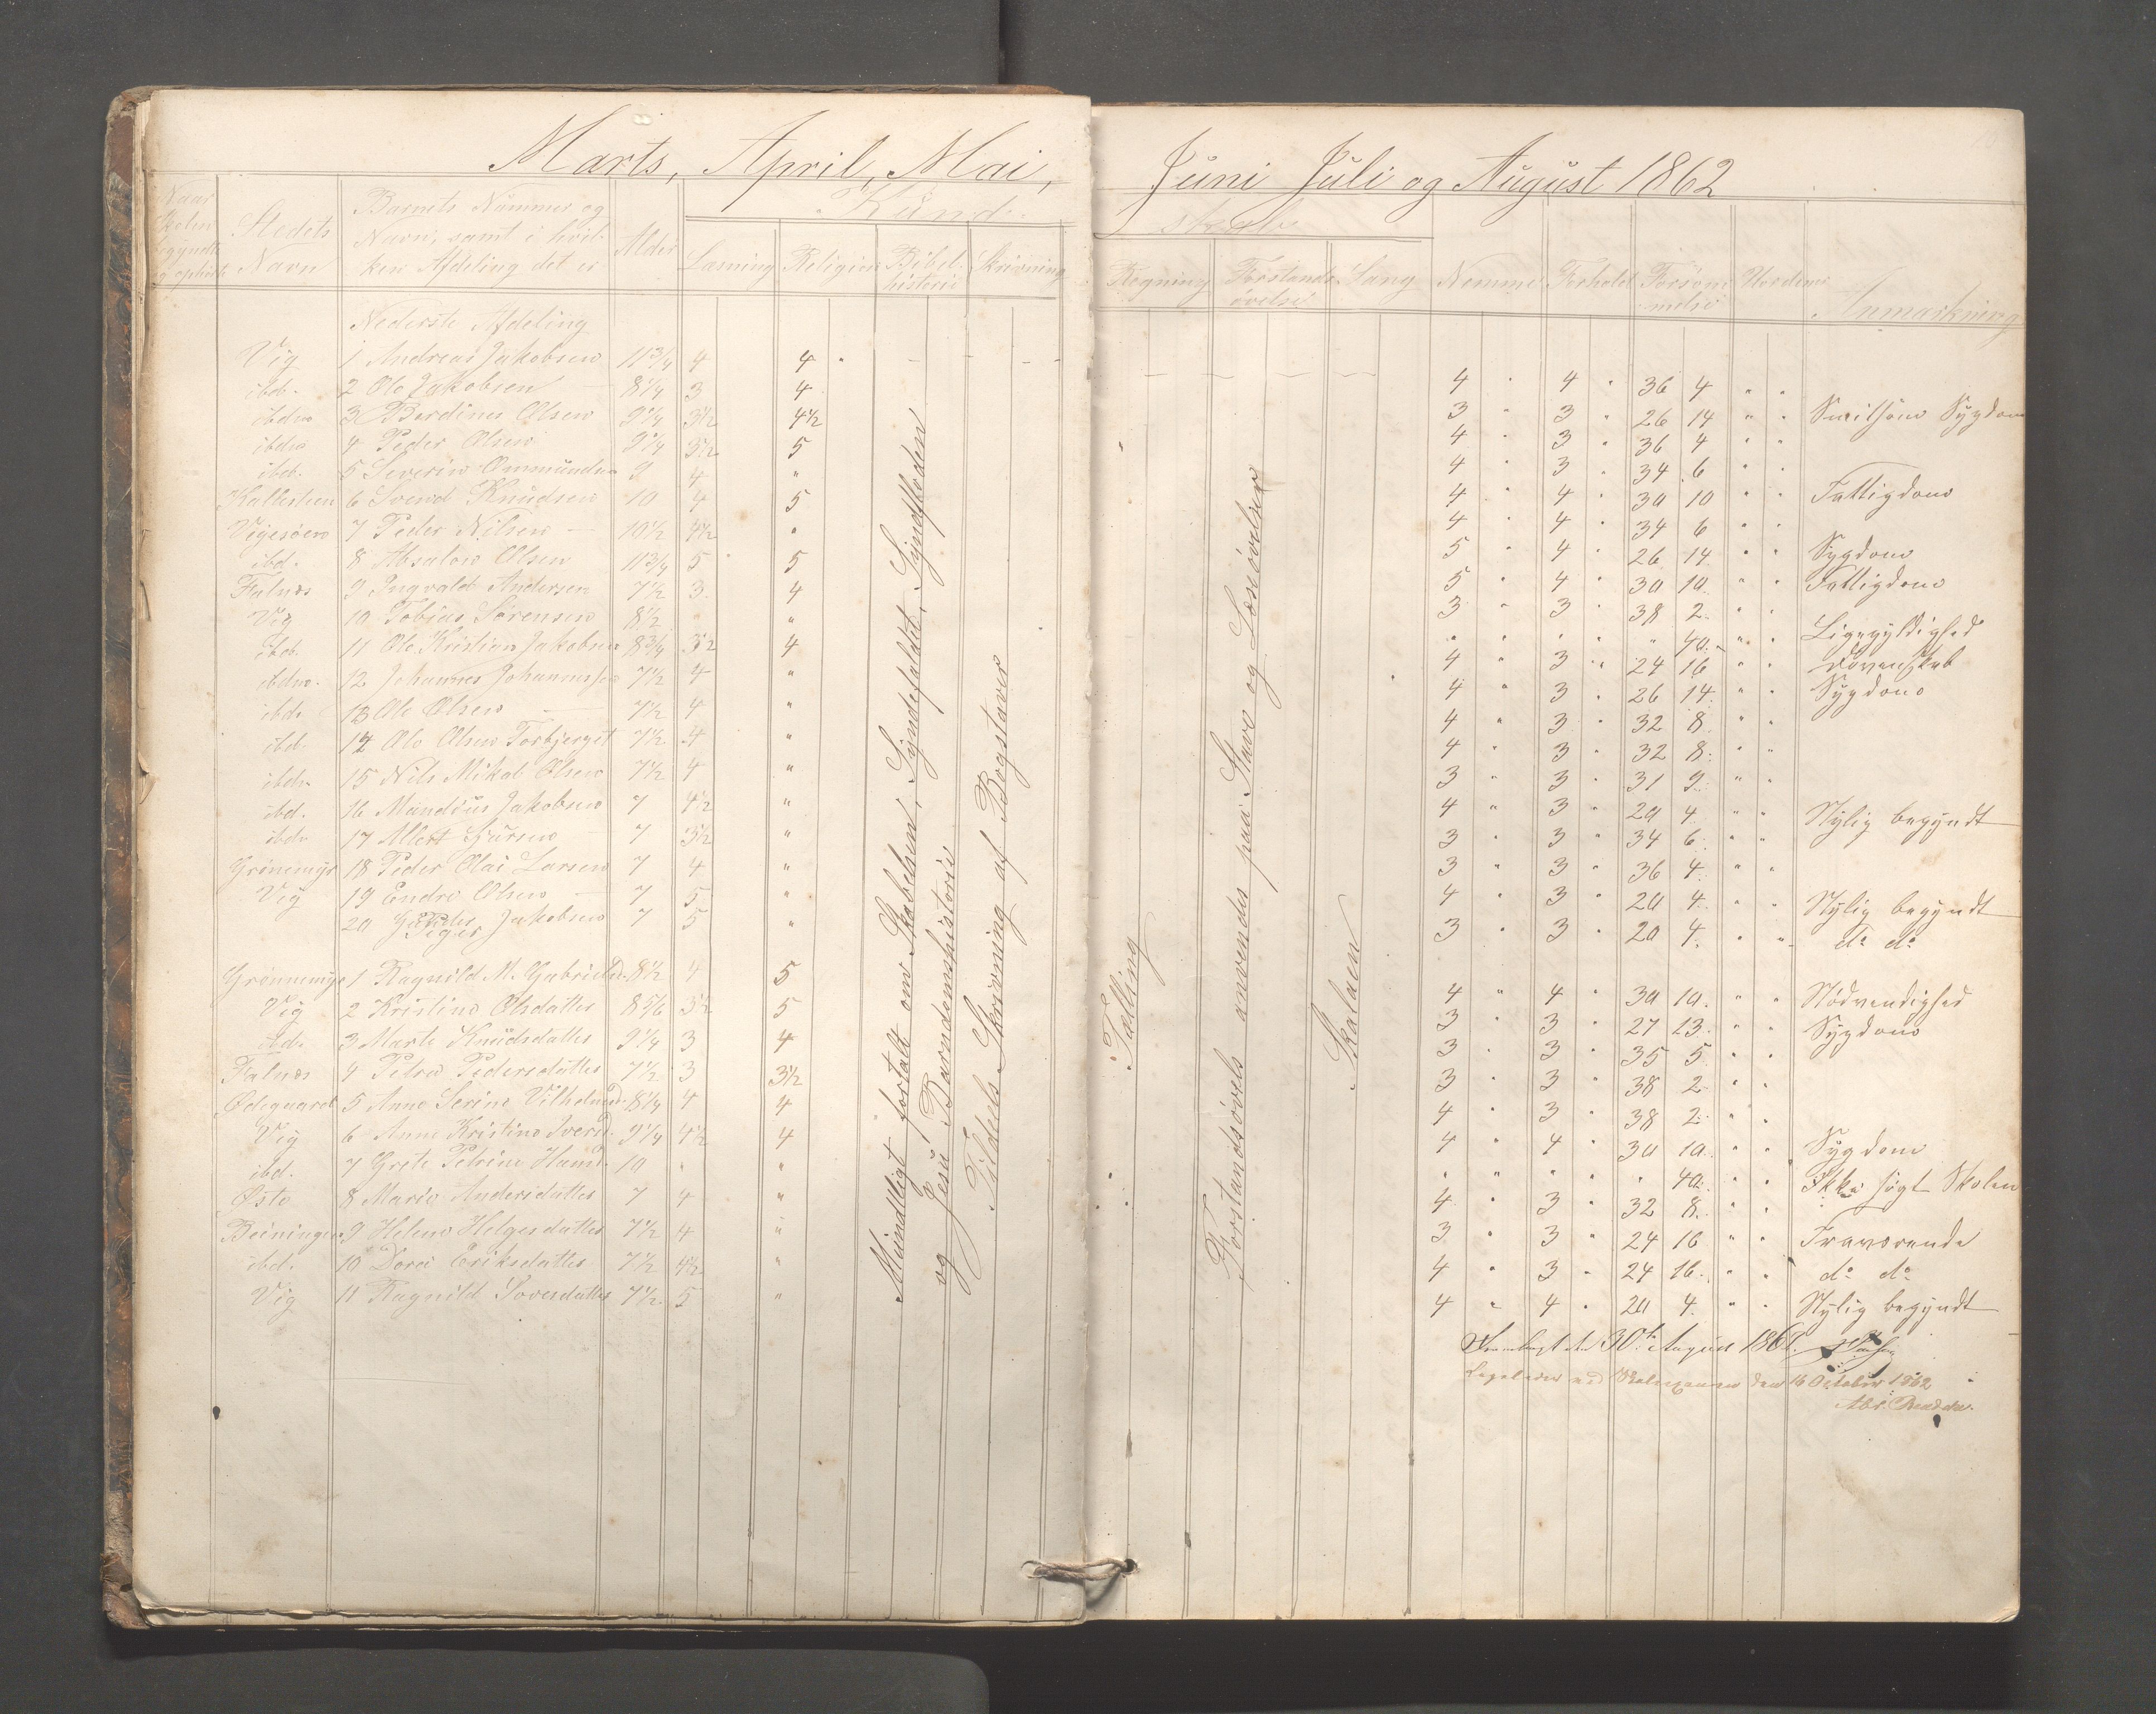 Marts, April, Mai,
Naar Skolen begyndte og ophørte
Stedets Navn
Barnets Nummer og Navn, samt i hvilken Afdeling det er
Alder
Kund-
Læsning Religion Bibelhistorie Skrivning
Nederste Afdeling
Vig 1 Andreas Jakobsen 11 3/4 4 4
ibd. 2 Ole Jakobsen 8 1/4 3 4
ibdm 3 Berdines Olsen 9 1/4 3 1/2 4 1/2
ibdm 4 Peder Olsen 9 1/4 3 1/2 5
ibd. 5 Severin Ommundsen 9 4 "
Kallesteen 6 Svend Knudsen 10 4 5
Vigesøen 7 Peder Nilsen 10 1/2 4 1/2 "
ibd. 8 Absalon Olsen 11 3/4 5 5
Falnes 9 Ingvald Andersen 7 1/2 3 4
Vig 10 Tobias Sørensen 8 1/2 "
ibd. 11 Ole Kristian Jakobsen 8 3/4 3 1/2 4
ibdm. 12 Johannes Johannessen 7 1/2 4 "
ibd. 13 Ole Olsen 7 1/2 4 "
ibd. 14 Ole Olsen Torbjerget 7 1/2 4 "
ibdm 15 Nils Mikal Olsen 7 1/2 4 "
ibd. 16 Mandius Jakobsen 7 4 1/2 "
ibdm 17 7 3 1/2 "
Grønemyr 18 Peder Olai Larsen 7 4 "
Vig 19 Endre Olsen 7 5 "
20 Jakobsen 7 5 "
Piger
Grønnemyr 1 Ragnild M. Gabrielsd. 8 1/2 4 5
Vig 2 Kristine Olsdatter 8 5/6 3 1/2 5
ibd. 3 Marte Knudsdatter 9 1/4 3 4
Falnes 4 Petra Pedersdatter 7 1/2 3 3 1/2
Ødegaard 5 Anne Serine Vilhelmsd. 8 1/4 4 4
Vig 6 Anne Kristine Iversd. 9 1/4 4 1/2 4
ibd. 7 Grete Petrine Hansd. 10 " "
Østø 8 Marie Andersdatter 7 4 "
Beiningen 9 Helene Helgesdatter 7 1/2 4 "
ibd. 10 Dorea Eriksdatter 7 1/2 4 1/2 "
Vig 11 Ragnild Sovesdatter 7 1/2 5 "
Mundtligt fortalt om Skabelsen, Syndefaldet, Syndfloden
og Jesu Barndomshistorie
Tildeels Skrivning af Bogstaver
Juni Juli og August 1862
skaber
Regning Forstandsøvelse Sang Nemme Forhold Forsømmelse Uordens Anmærkning
4 " 4 " 36 4 " "
3 " 3 " 26 14 " " Sygdom
4 " 3 " 36 4 " "
4 " 3 " 34 6 " "
4 " 4 " 30 10 " " Fattigdom
4 " 4 " 34 6 " "
5 " 4 " 26 14 " " Sygdom
5 " 4 " 30 10 " " Fattigdom
3 " 3 " 38 2 " "
" " " " " 40 " " Ligegyldighed
4 " 3 " 24 16 " " Dovenskab
4 " 3 " 26 14 " " Sygdom
4 " 3 " 32 8 " "
4 " 3 " 32 8 " "
3 " 3 " 31 9 " "
4 " 3 " 20 4 " " Nylig begyndt
3 " 3 " 34 6 " "
3 " 3 " 36 4 " "
4 " 3 " 20 4 " " Nylig begyndt
3 " 3 " 20 4 " " do do
4 " 4 " 30 10 " " Nødvendighed
3 " 3 " 27 13 " " Sygdom
3 " 3 " 35 5 " "
3 " 3 " 38 2 " "
4 " 3 " 38 2 " "
4 " 4 " 30 10 " " Sygdom
" " " " " 40 " " Ikke søgt Skolen
4 " 3 " 32 8 " "
3 " 3 " 24 16 " " Fraværende
4 " 3 " 24 16 " " do do
4 " 4 " 20 4 " " Nylig begyndt
Tælling
Forstandsøvels anvendes paa Stave og Læseøvelser
Skalaen
Fremlagt den 30te August 1862.
ved den 16 October 1862